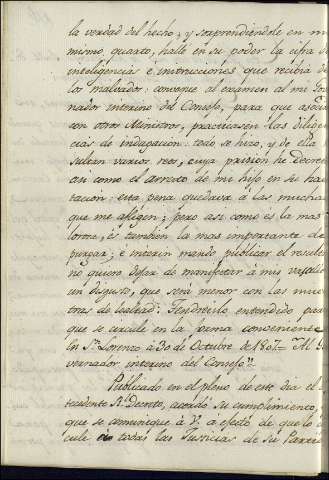 la verdad del hecho; y sorprendiendole en mi
mismo quarto, hallé en su poder la cifra de
inteligencias é instrucciones que recibia de
los malvados: convoque al examen al mi Gov
nador interino del Consejo, para que asocia
con otros Ministros, practicasen las diligen
cias de indagacion: todo se hizo, y de ella re
sultan varios reos, cuya prision he decreta
asi como el arresto de mi hijo en su habi
tacion: esta pena quedaba á las muchas
que me afligen; pero asi como es la mas do
lorosa, es tambien la mas importante de
purgar; é interin mando publicar el result
no quiero dejar de manifestar á mis vasallos
un disgusto, que será menor con las mues
tras de lealtad. Tendreislo entendido para
que se circule en la forma conveniente.
En Sn. Lorenzo á 30 de Octubre de 1807= Al Go
vernador interino del Consejo=
Publicado en el pleno de este dia el an
tecedente Rl. Decreto, acordó su cumplimiento,
que se comunique á V. a efecto de que lo cir
cule á todas las Justicias de su Partido